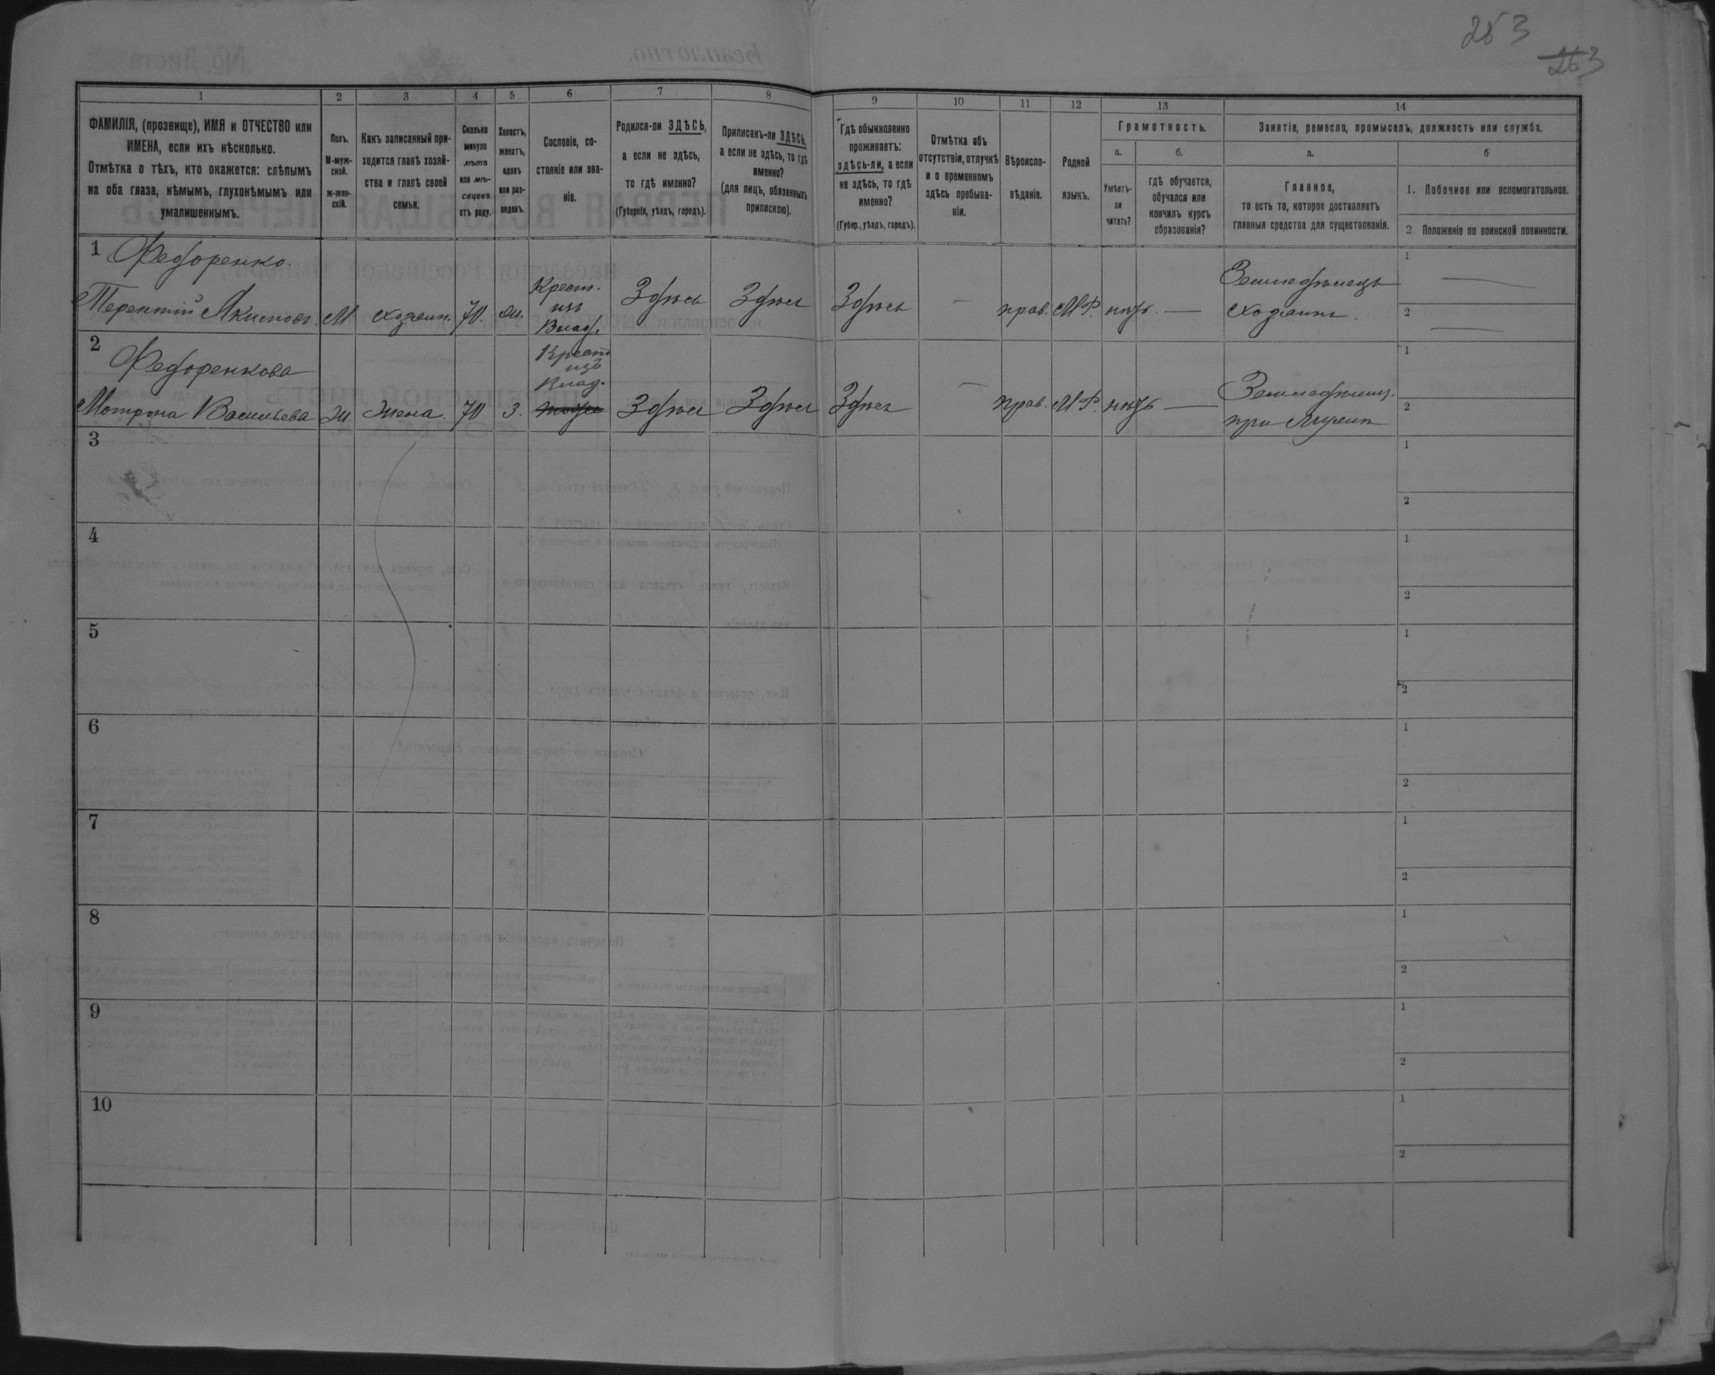 253
263
1
2
3
4
5
6
7
8
9
10
11
12
13
14
ФАМИЛІЯ, (прозвище), ИМЯ и ОТЧЕСТВО или
ИМЕНА, если ихъ нѣсколько.
Отмѣтка о тѣхъ, кто окажется: слѣпымъ
на оба глаза, нѣмымъ, глухонѣмымъ или
умалишеннымъ.
Полъ.
М-муж-
ской.
ж-жен-
скій.
Какъ записанный при-
ходится главѣ хозяй-
ства и главѣ своей
семьи.
Сколько
минуло
лѣтъ
или мѣ-
сяцевъ
отъ роду.
Холостъ,
женатъ,
вдовъ
или раз-
веденъ.
Сословіе, со-
стояніе или зва-
ніе.
Родился-ли ЗДѢСЬ,
а если не здѣсь,
то гдѣ именно?
(Губернія, уѣздъ, городъ).
Приписанъ-ли ЗДѢСЬ,
а если не здѣсь, то гдѣ
именно?
(для лицъ, обязанныхъ
припискою).
Гдѣ обыкновенно
проживаетъ:
здѣсь-ли, а если
не здѣсь, то гдѣ
именно?
(Губер., уѣздъ, городъ).
Отмѣтка объ
отсутствіи, отлучкѣ
и о временномъ
здѣсь пребыва-
ніи.
Вѣроиспо-
вѣданіе.
Родной
языкъ.
Грамотность.
а.
Умѣетъ-
ли
читать?
б.
гдѣ обучается,
обучался или
кончилъ курсъ
образованія?
Занятіе, ремесло, промыселъ, должность или служба.
а.
Главное,
то есть то, которое доставляетъ
главныя средства для существованія.
б
1. Побочное или вспомогательное.
2 Положеніе по воинской повинности.
1 Федоренко
Терентій Акимовъ М хозяинъ. 70. ж. Крест. изъ Влад. Здѣсь Здѣсь Здѣсь — прав. МР. нѣтъ — Земледѣлецъ хозяинъ.
1 —
2 —
2 Федоренкова
Матрона Васильева Ж жена. 70 з. Крест изъ Влад. Здѣсь Здѣсь Здѣсь — прав. МР. нѣтъ — Земледѣлиц. при мужѣ
1
2
3
1
2
4
1
2
5
1
2
6
1
2
7
1
2
8
1
2
9
1
2
10
1
2